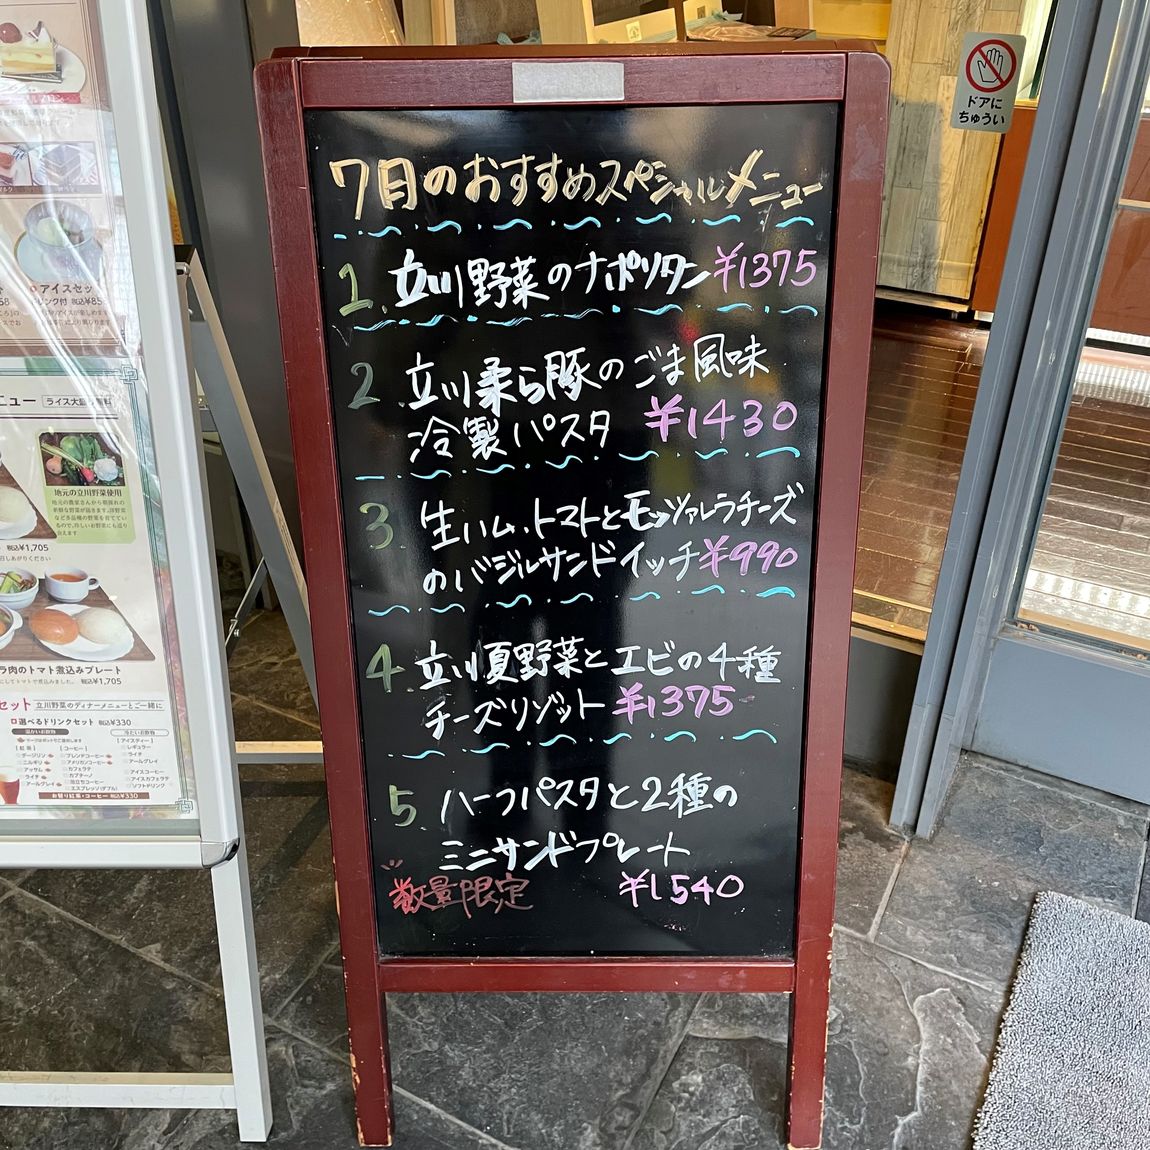 7月のおすすめスペシャルメニュー
1. 立川野菜のナポリタン ¥1375
2 立川柔ら豚のごま風味
冷製パスタ ¥1430
3. 生ハム・トマトとモッツァレラチーズ
のバジルサンドイッチ ¥990
4 立川夏野菜とエビの4種
チーズリゾット ¥1375
5. ハーフパスタと2種の
ミニサンドプレート
数量限定 ¥1540
ドアに
ちゅうい
アイスセッ
ニュー ライス大盛り無料
地元の立川野菜使用
税込¥1,705
ラ肉のトマト煮込みプレート
税込¥1,705
セット 立川野菜のディナーメニューとご一緒に
選べるドリンクセット 税込¥330
温かいお飲物
冷たいお飲物
[紅茶]
ダージリン
ニルギリ
アッサム
ライチ
アールグレイ
[コーヒー]
ブレンドコーヒー
アメリカンコーヒー
カフェラテ
カプチーノ
エスプレッソ(ダブル)
[アイスティー]
レギュラー
ライチ
アールグレイ
アイスコーヒー
アイスカフェラテ
ソフトドリンク
お替り紅茶・コーヒー 税込¥330